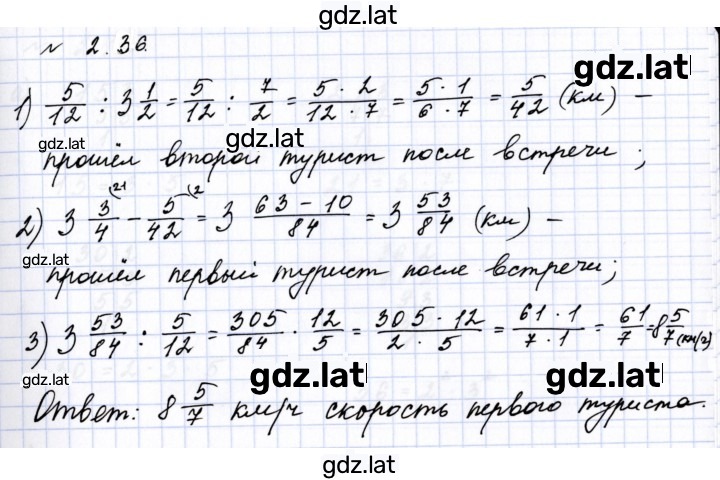 gdz.lat
№ 2.36.
gdz.lat
1) 5/12 : 3 1/2 = 5/12 : 7/2 = (5 · 2)/(12 · 7) = (5 · 1)/(6 · 7) = 5/42 (км) –
gdz.lat gdz.lat
прошёл второй турист после встречи;
2) 3 3/4 (21 – 5/42 (2 = 3 (63 – 10)/84 = 3 53/84 (км) –
gdz.lat gdz.lat
прошёл первый турист после встречи;
3) 3 53/84 : 5/12 = 305/84 · 12/5 = (305 · 12)/(2 · 5) = (61 · 1)/(7 · 1) = 61/7 = 8 5/7 (км/ч)
gdz.lat gdz.lat gdz.lat
Ответ: 8 5/7 км/ч скорость первого туриста.
gdz.lat